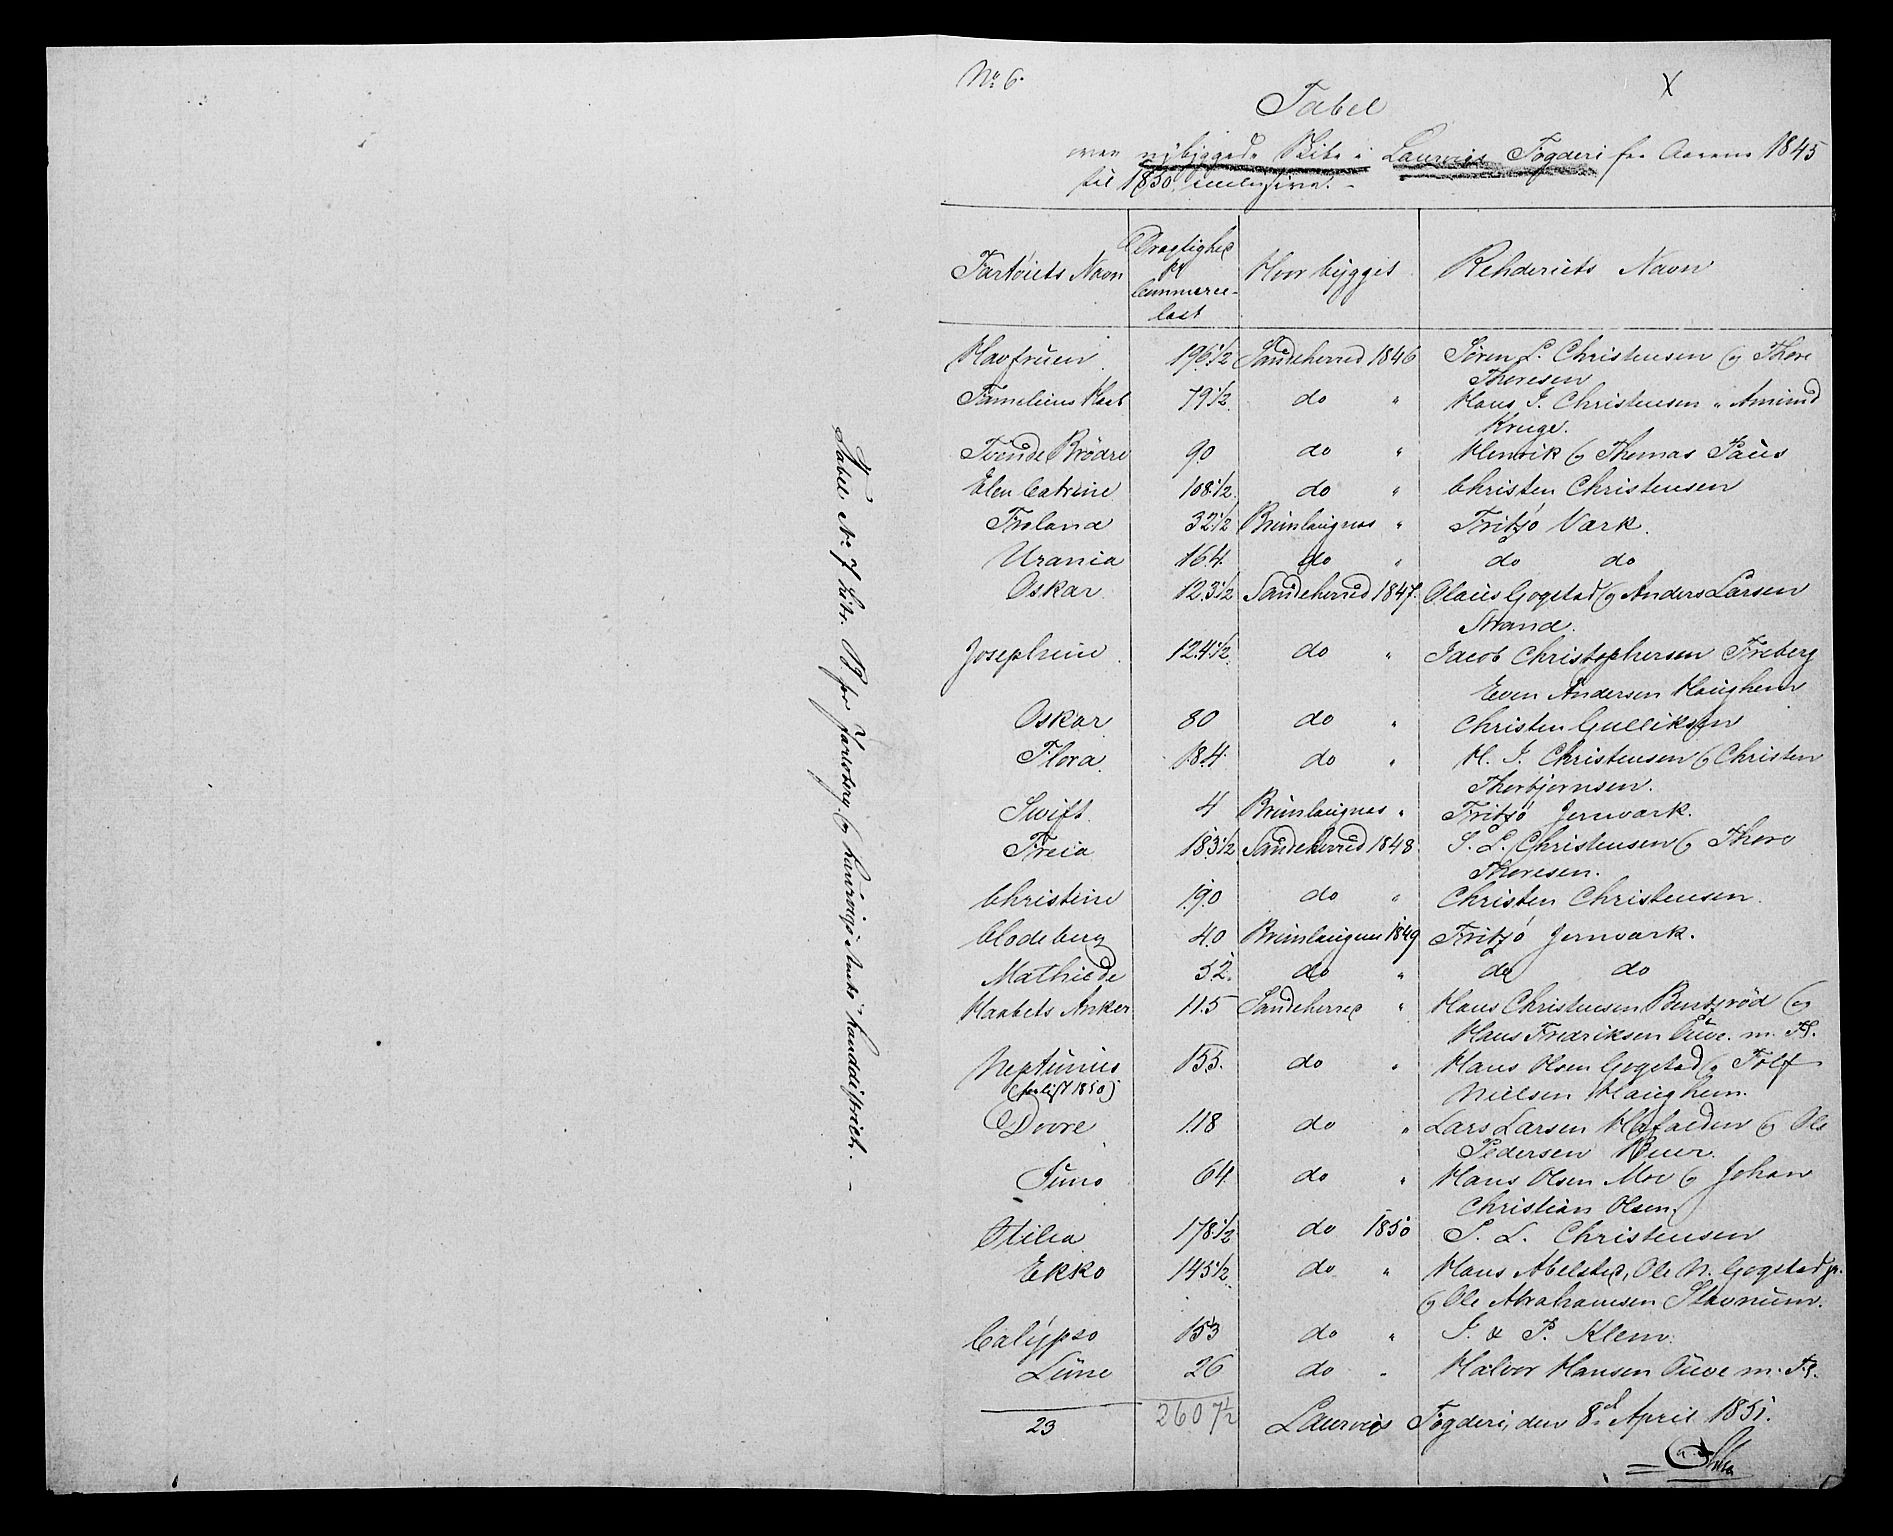 No 6.
Tabel
over nybyggede Skibe i Laurvigs Fogderi fra Aarene 1845
til 1850 inclusive. -
Fartöiets Navn
Drægtighed
pr
Commerce-
last
Hvor bygget
Rehderiets Navn
Havfruen 196 1/2 Sandeherred 1846 Sören L. Christensen og Thore
Thoresen
Familiens Haab 79 1/2 do " Hans J. Christensen " Amund
Kruge.
Tvende Brödre 90 do " Henrik og Thomas Paus
Elen Catrine 108 1/2 do " Christen Christensen
Froland 32 1/2 Brunlaugnæs " Fritzö Værk.
Urania 164 do " do do
Oskar 123 1/2 Sandeherred 1847. Olaus Gogstad og Anders Larsen
Strand.
Josephine 124 1/2 do " Jacob Christophersen Freberg
Even Andersen Haughem
Oskar 80 do " Christen Gulliksen
Flora 184 do " H. J. Christensen og Christen
Thorbjörnsen.
Swift 4 Brunlaugnæs " Fritzö Jernværk.
Freia 183 1/2 Sandeherred 1848 S. L. Christensen og Thore
Thoresen.
Christine 190 do " Christen Christensen.
Clodeberg 40 Brunlaugnæs 1849 Fritzö Jernværk.
Mathilde 52 do " do do
Haabets Anker 115 Sandeherred " Hans Christensen Bentsröd og
Hans Fredriksen Ouve. m. Fl.
Neptunus 155. do " Hans Olsen Gogstad og Tolf
(forlist 1850) Nielsen Haughem.
Dovre 118 do " Lars Larsen og Ole
Pedersen Buer.
Juno 64 do " Hans Olsen Moe og Johan
Christian Olsen
Otilia 178 1/2 do 1850 S. L. Christensen
Ekko 145 1/2 do " Hans Abelsted, Ole N. Gogstad jr.
og Ole Abrahamsen Stavnum.
Calypso 153 do " J. & P. Klem.
Lüne 26 do " Halvor Hansen Ouve m. Fl.
23 2607 1/2 Laurvigs Fogderi, den 8de April 1851.
Tabel No 7 Litr. B for Jarlsberg og Laurvigs Amts Landdistrict. -